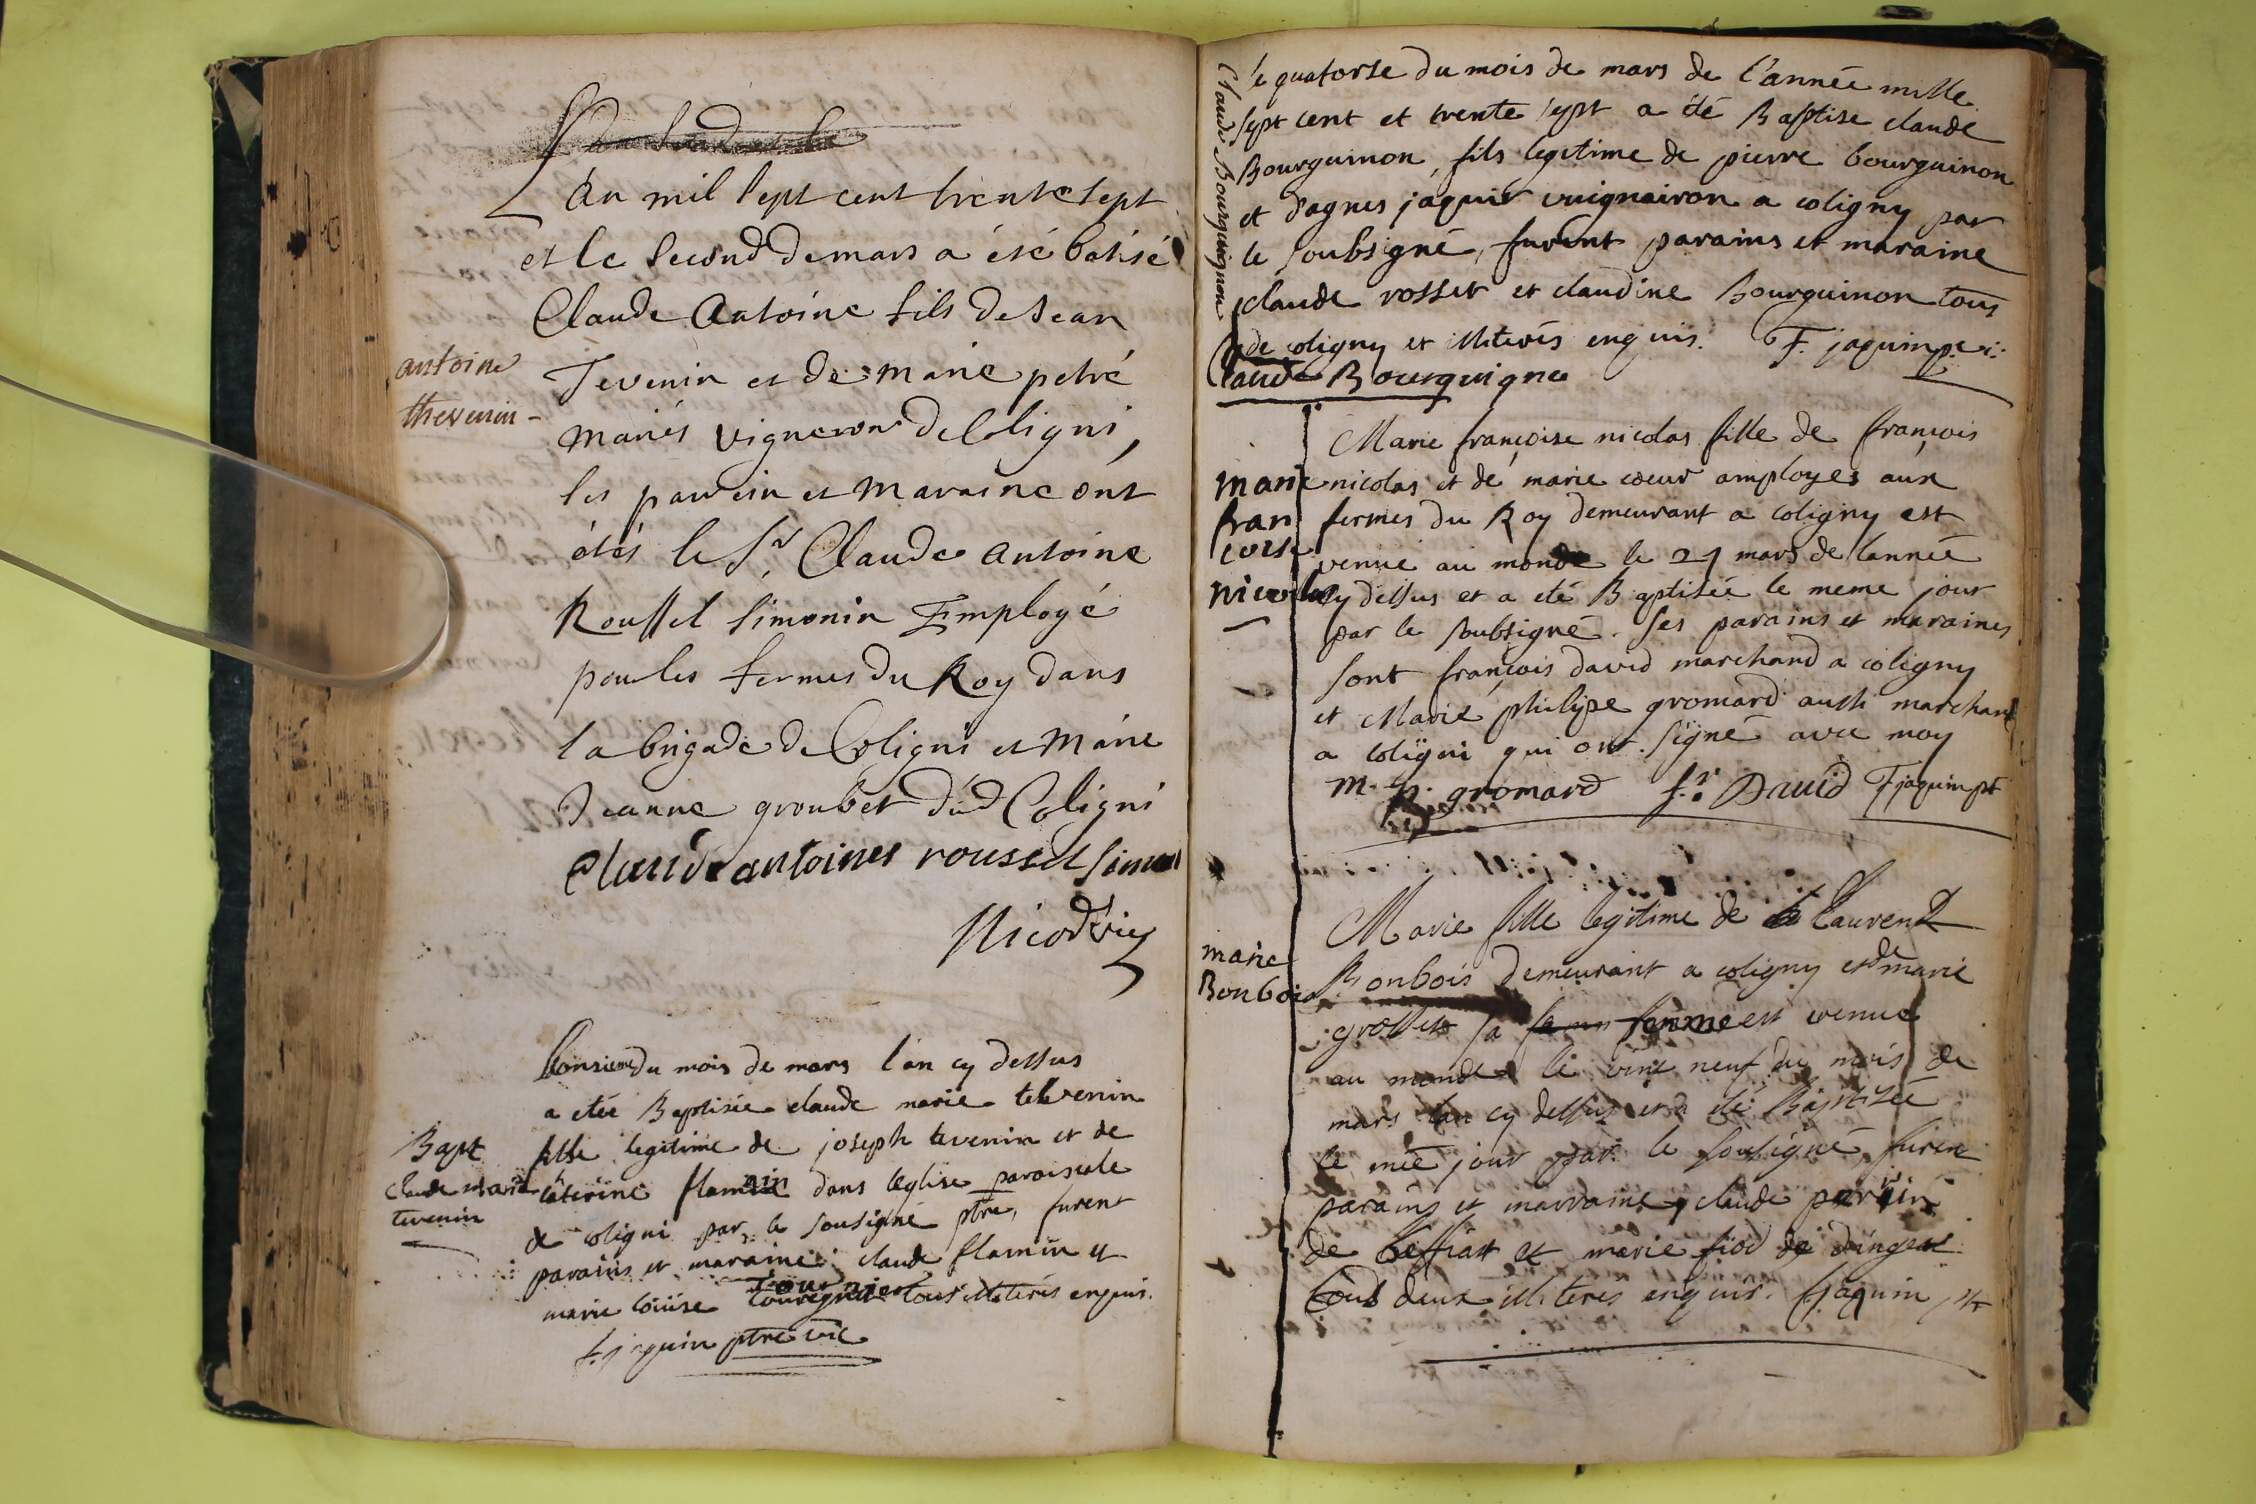 L'an mil sept cent trente sept
et le second de mars a été batisé
Claude Antoine fils de Jean
antoine
thevenin
Tevenin et de marie petré
mariés vignerons de Coligni,
les parrein et maraine ont
étés le Sr Claude Antoine
Roussel Simonin Employé
pour les fermes du Roy dans
la brigade de Coligni et Marie
Jeanne groubet dud Coligni
Claude antoines roussel simon
Nicod vic
Lonsieme du mois de mars l'an cy dessus
a etée Baptisée claude marie tevenin
Bapt
claude marie
tevenin
fille legitime de joseph tevenin et de
caterine flamin dans leglise paroissele
de coligni par le sousigné ptre, furent
parains et maraine: claude flamin et
marie loüise Tournier tous illiterés enquis.
f. jaquin ptre vic
Claude Bourguignon
le quatorse du mois de mars de l'année mille
sept cent et trente sept a été Baptise claude
Bourguinon, fils legitime de pierre bourguinon
et d'agnes jaquir vuignairon a coligny par
le soubsigné, furent parains et maraine
claude rosset et claudine Bourguinon tous
de coligny et illiterés enquis. F. jaquin ptre
Claude Bourguigno
marie
fran
coise
nicolas
Marie françoise nicolas fille de françois
nicolas et de marie coeur amployes aux
fermes du Roy demeurant a coligny est
venue au monde le 21 mars de l'année
cy dessus et a eté Baptisée le meme jour
par le soubsigné. ses parains et maraines
sont françois david marchand a coligny
et Marie philipe gromard aussi marchand
a coligni qui ont signé avec moy
m. p. gromard fr. David F jaquin pt
marie
Bonbois
Marie fille legitime de Laurent
Bonbois demeurant a coligny et de marie
grosset sa femme est venue
au monde le vint neuf du mois de
mars l'an cy dessus et a été Baptisée
le mee jour par le sousigné, furent
parains et marraine, claude perrin
de beffiat et marie fiod de dingat
tous deux illiterés enquis. f jaquin ptr